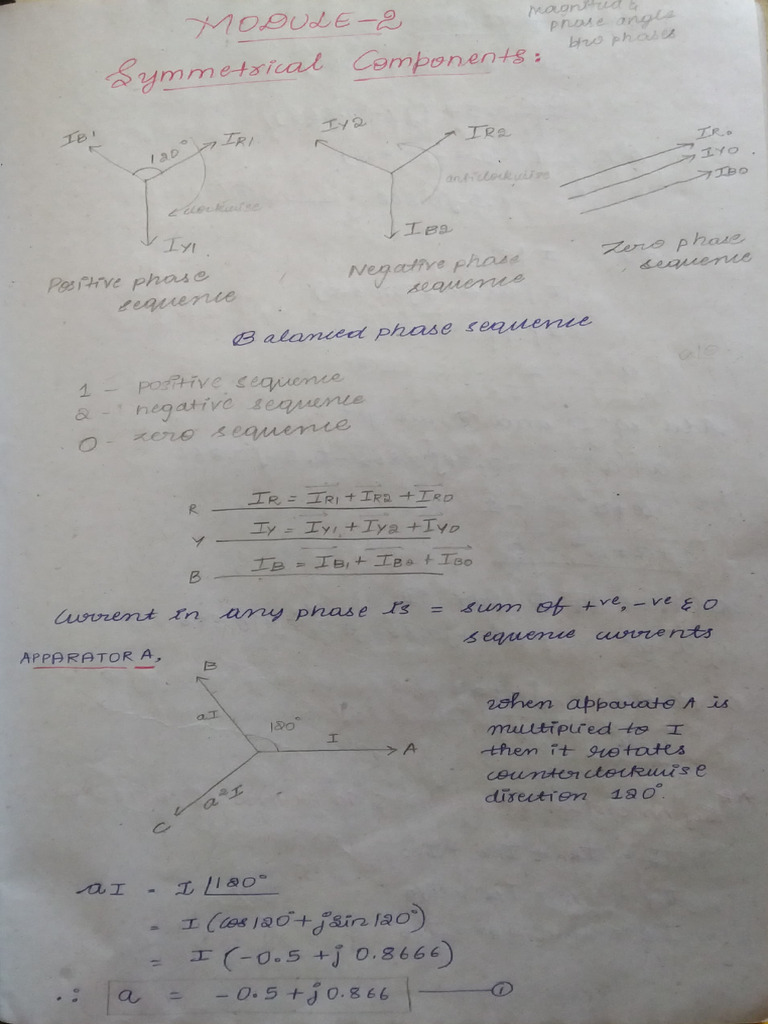 magnitud &
phase angle
btro phases
MODULE-2
Symmetrical Components:
IB1
120°
IR1
clockwise
IY1
Positive phase
sequence
IY2
IR2
anticlockwise
IB2
Negative phase
sequence
IR0
IY0
IB0
Zero phase
sequence
Balanced phase sequence
1 - positive sequence
2 - negative sequence
0 - zero sequence
R IR = IR1 + IR2 + IR0
Y IY = IY1 + IY2 + IY0
B IB = IB1 + IB2 + IB0
Current in any phase is = sum of +ve, -ve & 0
sequence currents
APPARATOR A,
B
aI
120°
I
A
a²I
C
when apparato A is
multiplied to I
then it rotates
counterclockwise
direction 120°.
aI = I ∠120°
= I (cos120°+jsin120°)
= I (-0.5 + j 0.8666)
∴ a = -0.5+j0.866 ——①